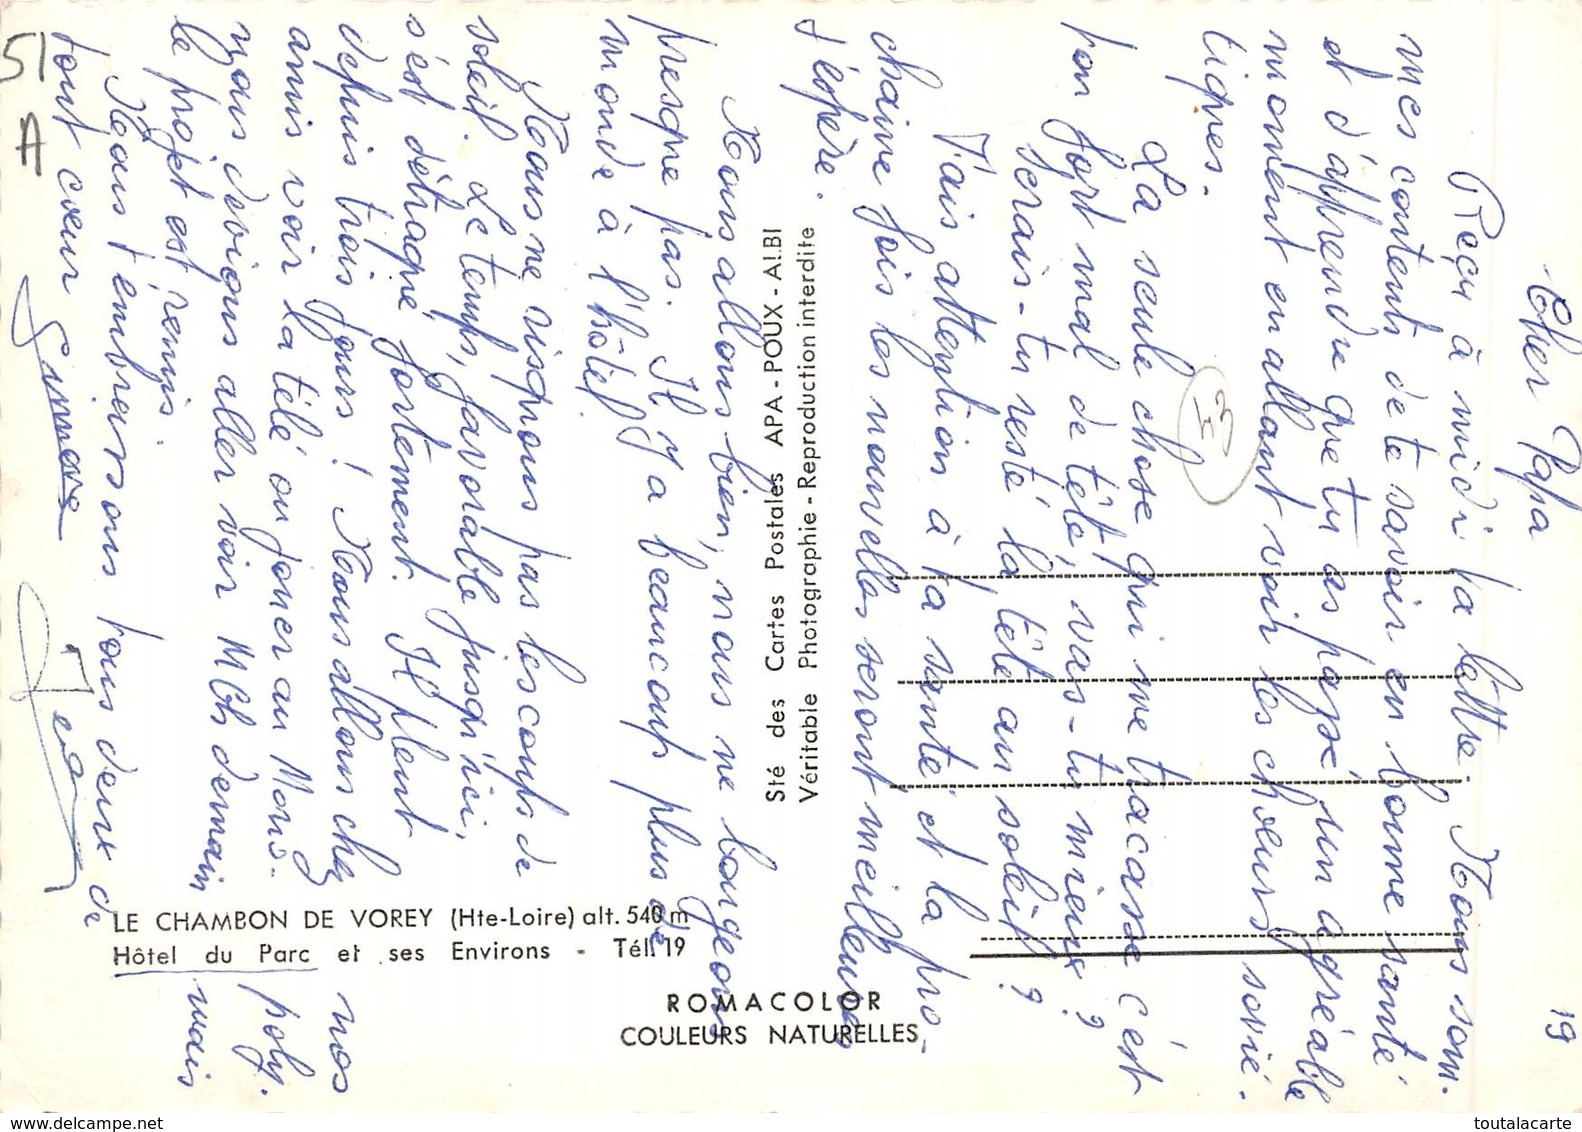 19
Cher Papa
Reçu à midi ta lettre. Nous som.
mes contents de te savoir en bonne santé
et d'apprendre que tu as passé un agréable
moment en allant voir les choeurs sovié.
tiques.
La seule chose qui me tracasse c'est
ton fort mal de tête, vas-tu mieux ?
Serais-tu resté la tête au soleil ?
Fais attention à ta santé et la pro-
chaine fois les nouvelles seront meilleures
j'espère.
Nous allons bien, nous ne bougeons
presque pas. Il y a beaucoup plus de
monde à l'hôtel.
Nous ne risquons pas les coups de
soleil. Le temps, favorable jusqu'ici,
s'est détraqué fortement. Il pleut
depuis trois jours ! Nous allons chez nos
amis voir la télé ou jouer au Mono-
poly.
Nous devions aller voir MCh demain mais
le projet est remis.
Nous t'embrassons tous deux de
tout coeur
Simone
Jean
51
A
43
Sté des Cartes Postales APA-POUX-ALBI
Véritable Photographie - Reproduction interdite
LE CHAMBON DE VOREY (Hte-Loire) alt. 540 m
Hôtel du Parc et ses Environs - Tél. 19
ROMACOLOR
COULEURS NATURELLES
www.delcampe.net
toutalacarte